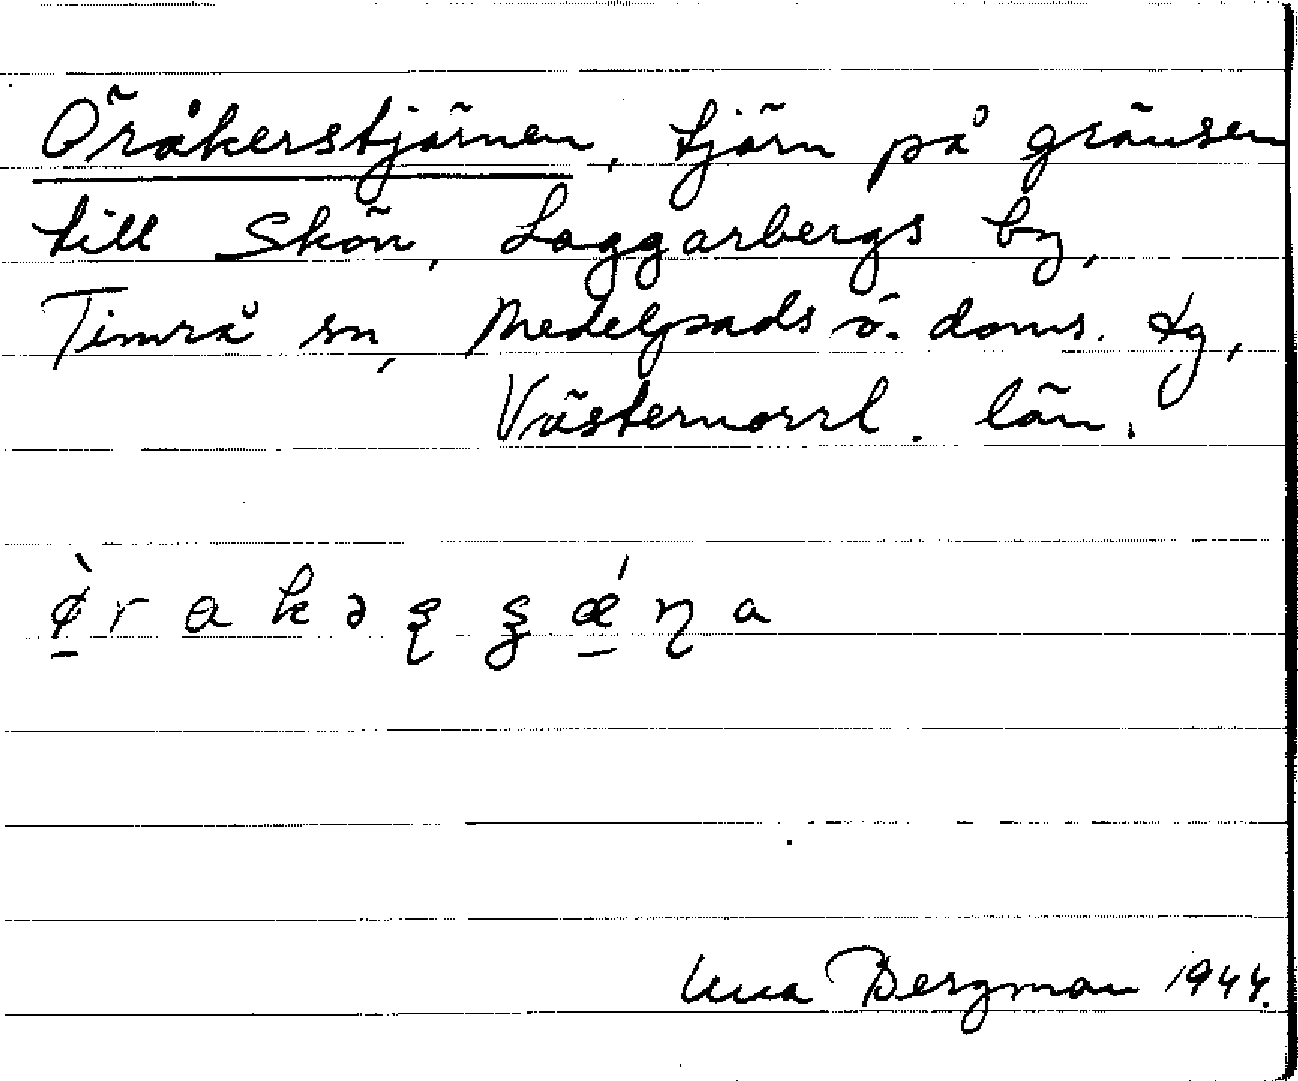 Öråkerstjärnen, tjärn på gränsen
till Skön, Laggarbergs by,
Timrå sn, Medelpads ö. doms. tg,
Västernorrl. län.
Bergman 1944.